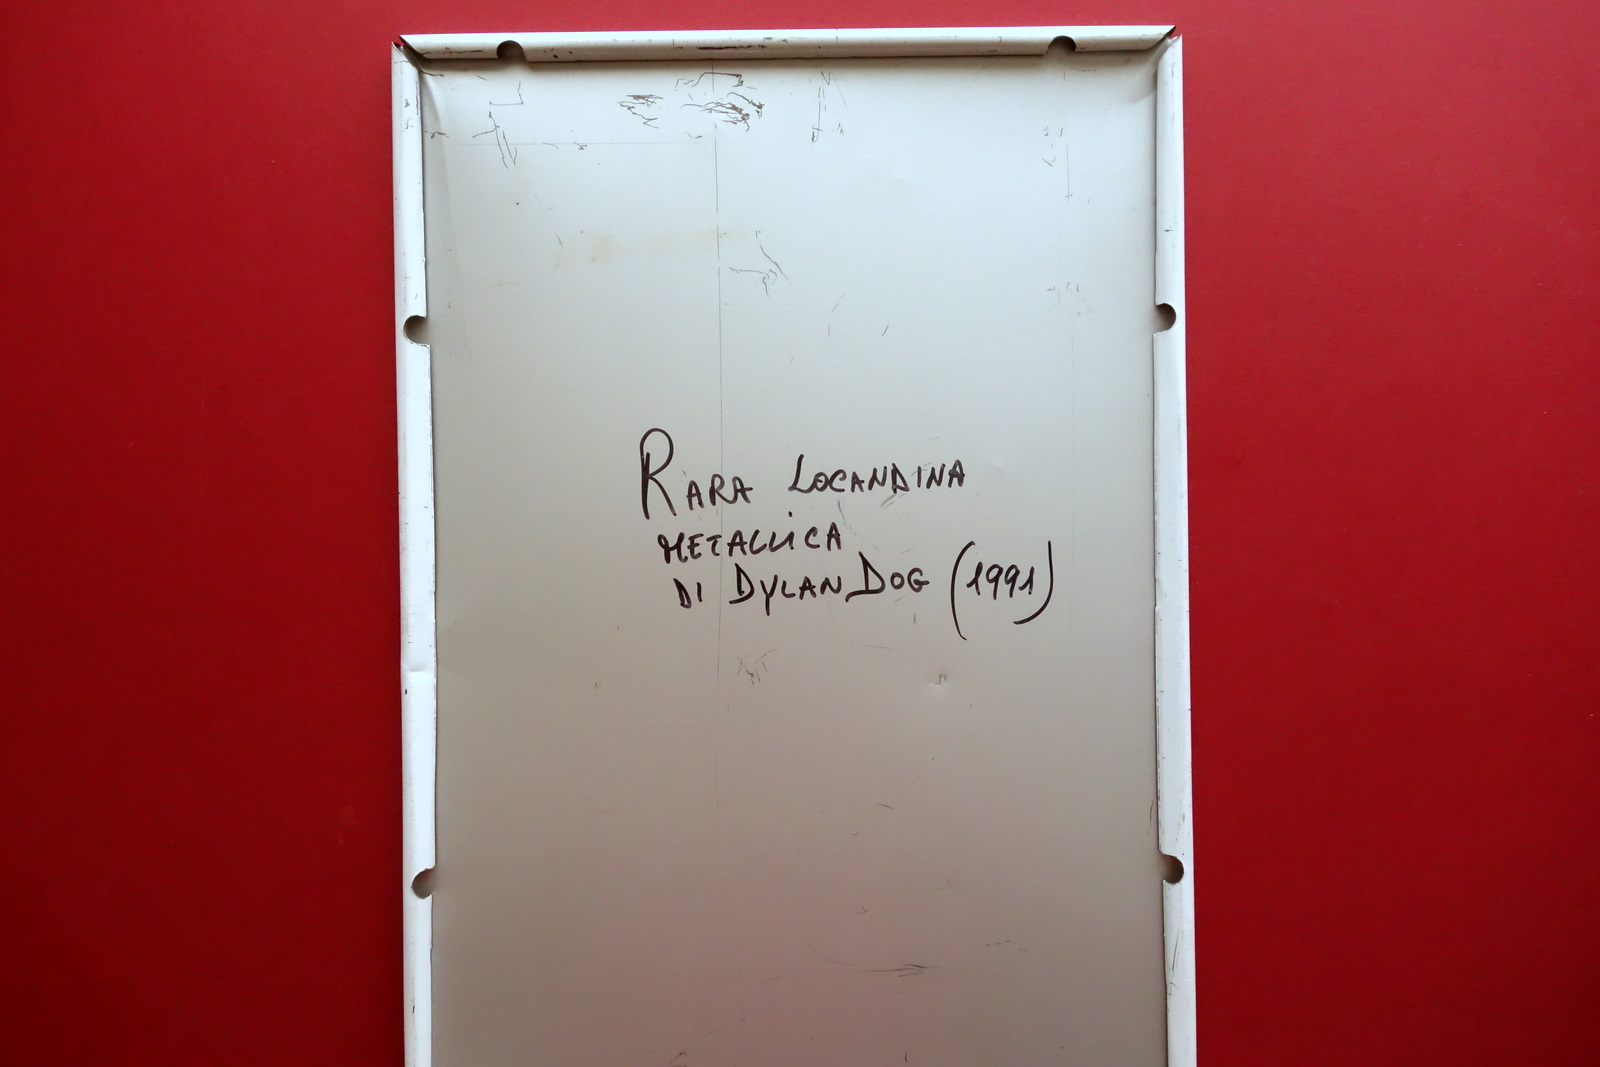 RARA LOCANDINA
METALLICA
DI DYLAN DOG (1991)